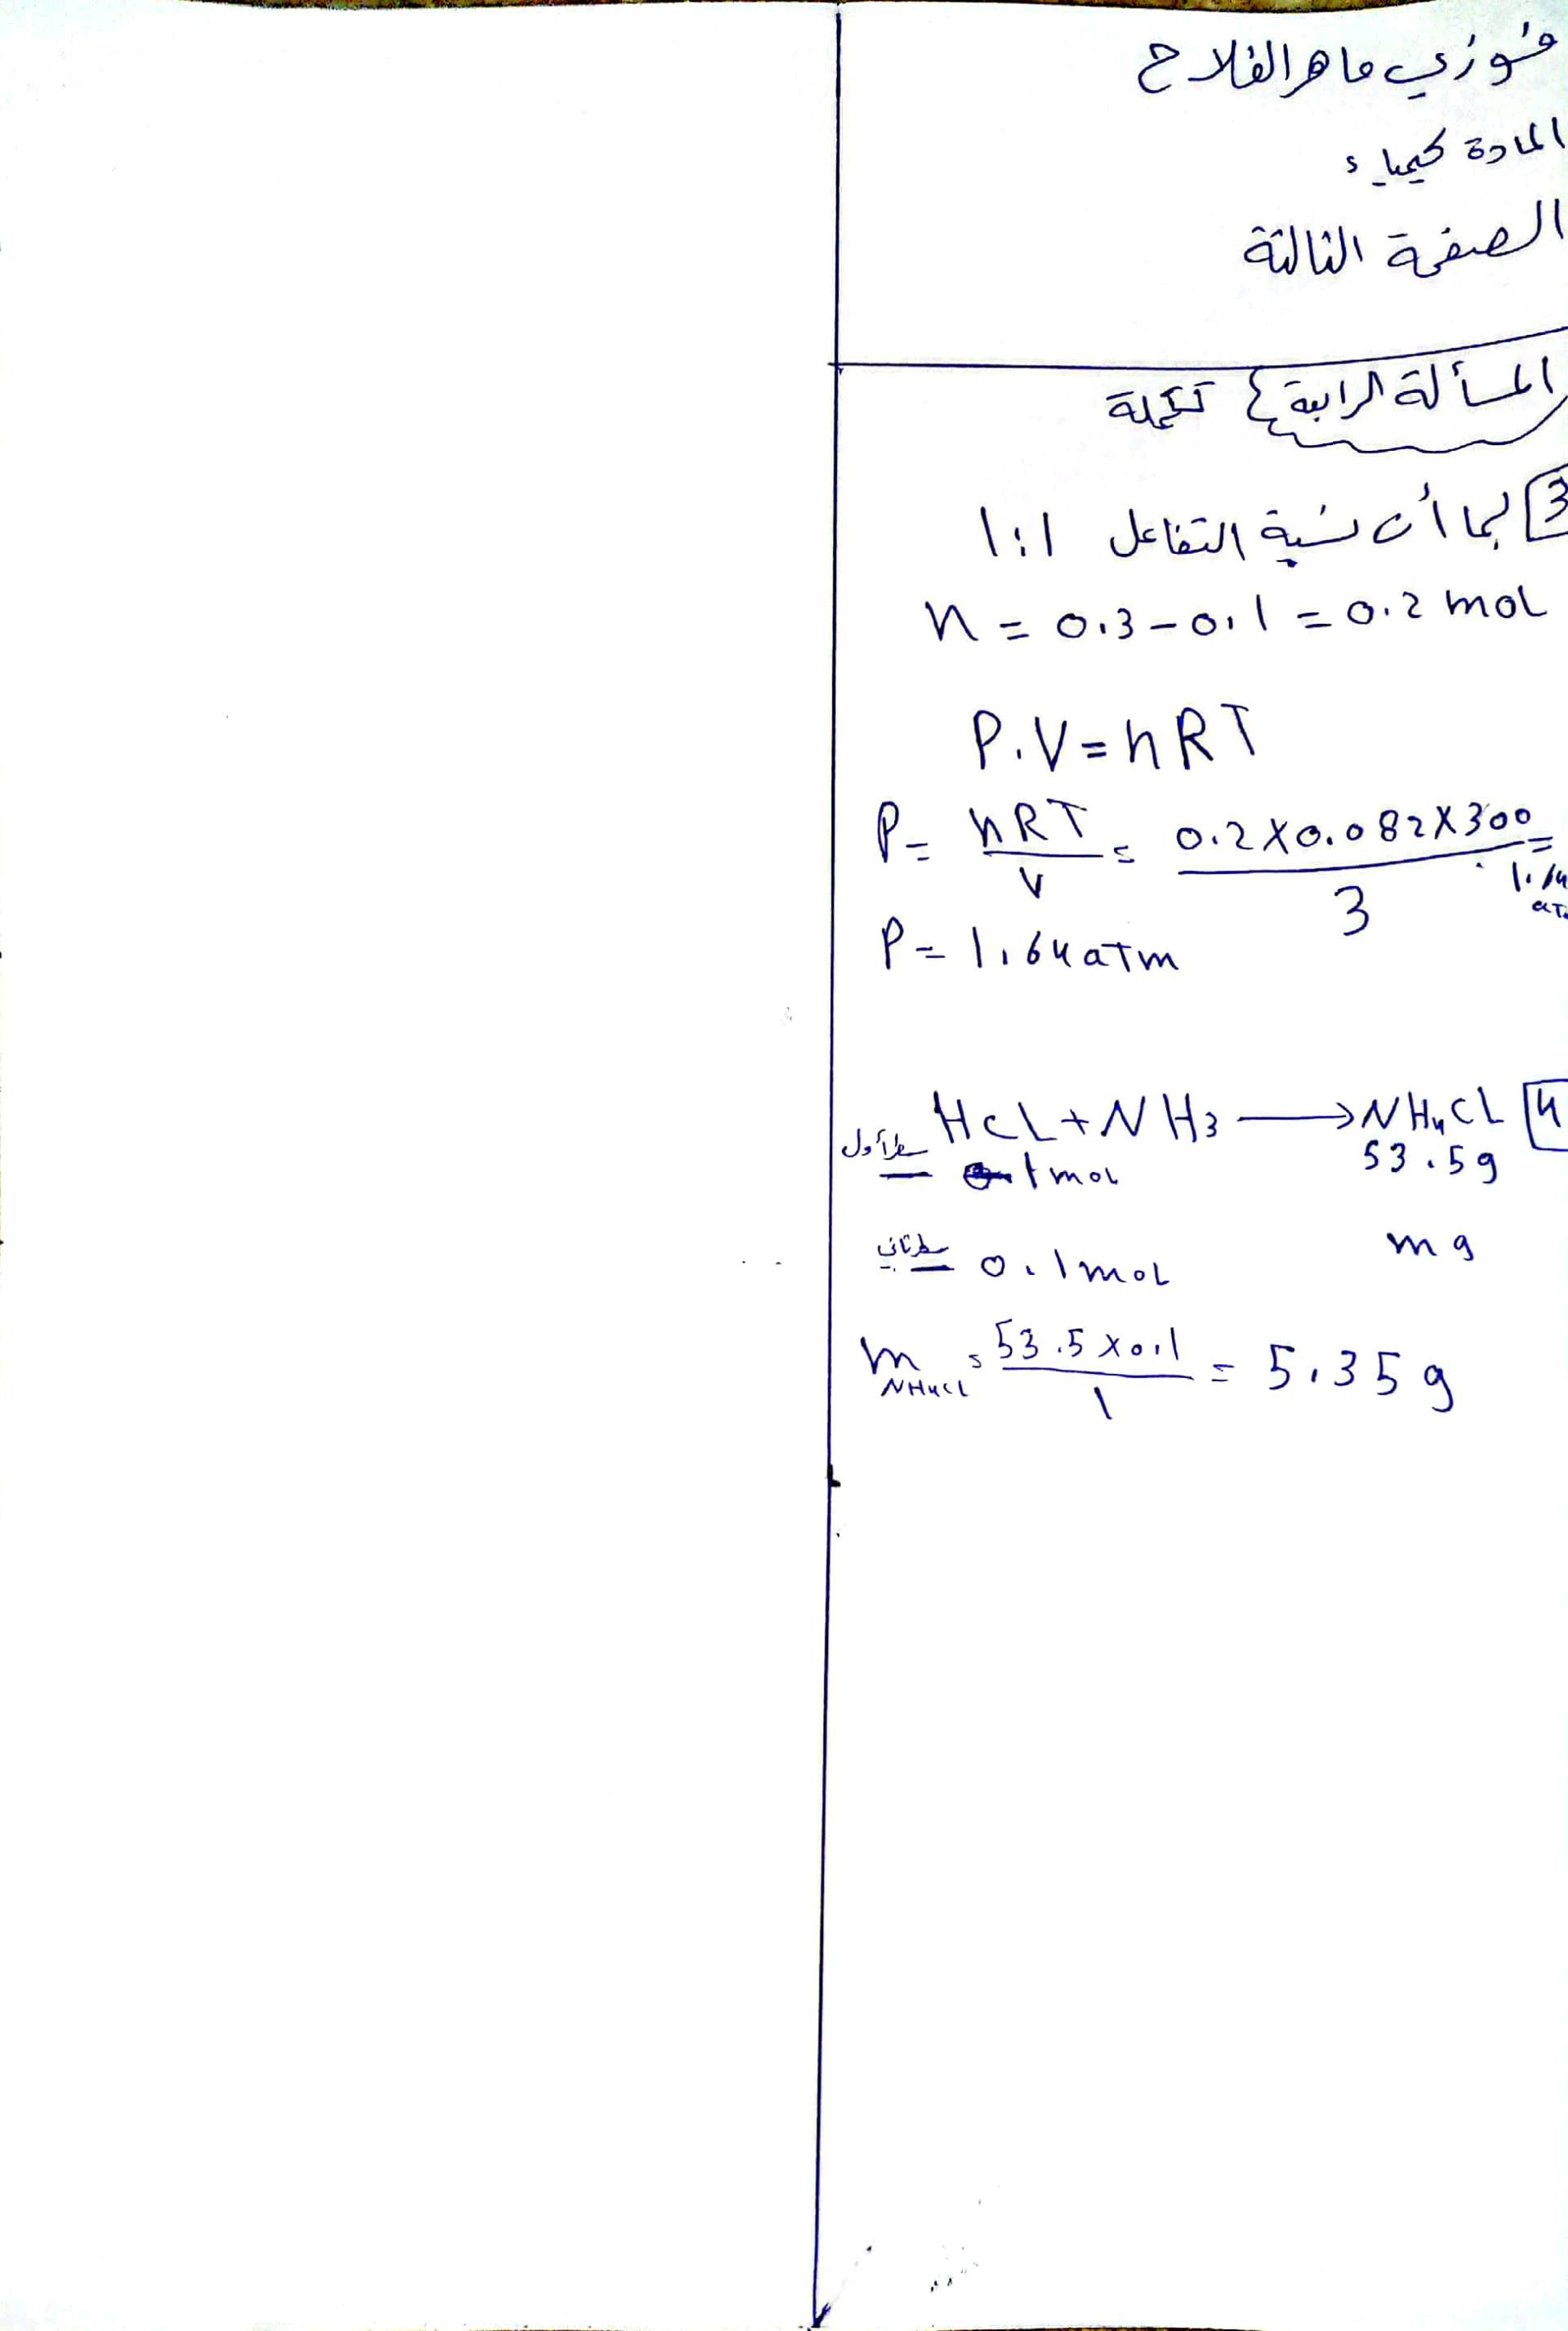 فوزي ماهر الفلاح
المادة كيمياء
الصفحة الثالثة
المسألة الرابعة } تكملة
3 بما أن نسبة التفاعل 1:1
n = 0.3 - 0.1 = 0.2 mol
P.V = nRT
P = nRT / V = 0.2 X 0.082 X 300 / 3 = 1.64
P = 1.64 atm
4 HCL + NH3 → NH4CL
سطر أول 1 mol 53.5 g
سطر ثاني 0.1 mol m g
m NH4Cl = 53.5 x 0.1 / 1 = 5.35 g